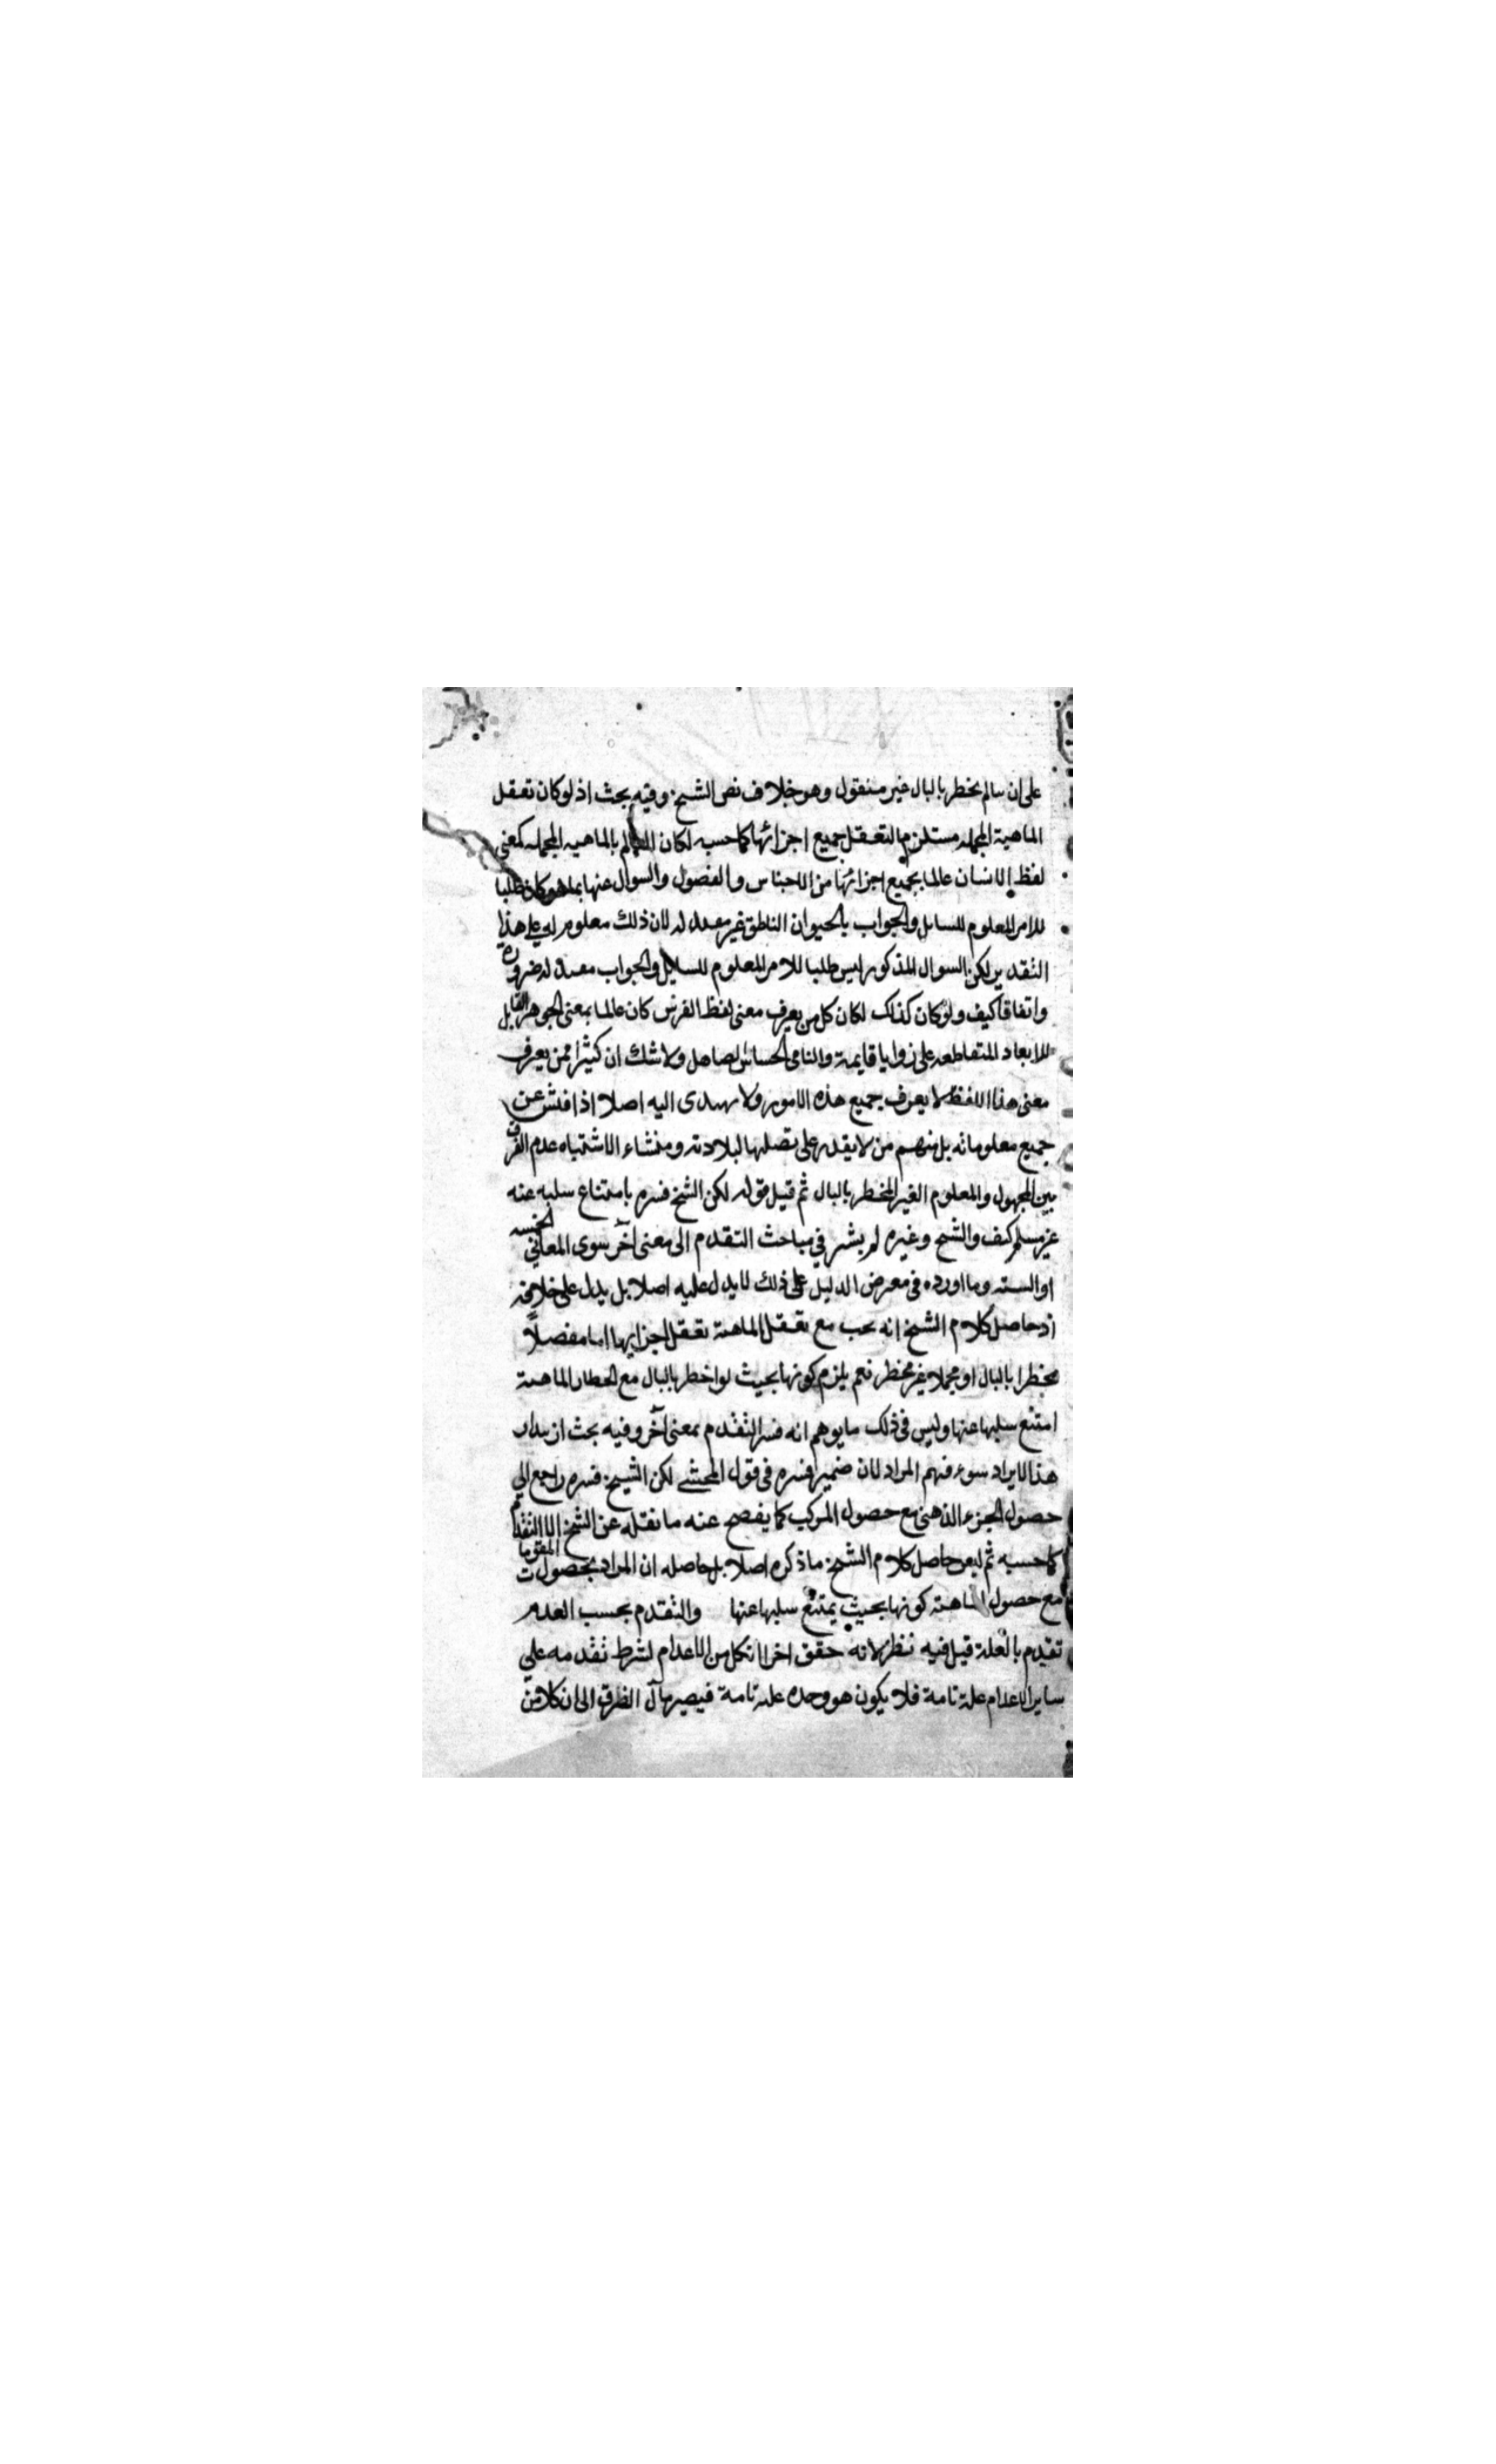 على ان مالم يخطر بالبال غير منقول وهو خلاف نص الشيخ وفيه بحث اذ لو كان تعقل
الماهية المجمله مستلزم التعقل جميع اجزائها كما حسبه لكان العالم بالماهيه المجمله كمعنى
لفظ الانسان عالما بجميع اجزائها من الاجناس والفصول والسوال عنها بما هو كان طلبا
للامر المعلوم للسايل والجواب بالحيوان الناطق غير مفيد له لان ذلك معلوم له على هذا
التقدير لكن السوال المذكور ليس طلبا للامر المعلوم للسايل والجواب مفيد له ضرورة
واتفاقا كيف ولو كان كذلك لكان كل من يعرف معنى لفظ الفرس كان عالما بمعنى الجوهر القابل
للابعاد المتقاطعه على زوايا قايمة والنامى الحساس الصاهل ولا شك ان كثيرا ممن يعرف
معنى هذا اللفظ لا يعرف جميع هذه الامور ولا يهتدى اليه اصلا اذا فتش عن
جميع معلوماته بل منهم من لا يقدر على تصلها لبلادته ومنشاء الاشتباه عدم الفرق
بين المجهول والمعلوم الغير المخطر بالبال ثم قيل قوله لكن الشيخ فسره بامتناع سلبه عنه
غير مسلم كيف والشيخ وغيره لم يشر في مباحث التقدم الى معنى آخر سوى المعاني الخمسه
او السته وما اورده فى معرض الدليل على ذلك لا يدل عليه اصلا بل يدل على خلافه
اذ حاصل كلام الشيخ انه يجب مع تعقل الماهية تعقل اجزايها اما مفصلاً
مخطرا بالبال او مجملا غير مخطر نعم يلزم كونها بحيث لو اخطر بالبال مع اخطار الماهية
امتنع سلبها عنها وليس فى ذلك ما يوهم انه فسر التقدم بمعنى آخر وفيه بحث اذ مدار
هذا الايراد سوء فهم المراد لان ضمير فسره فى قول المحشى لكن الشيخ فسره راجع الي
حصول الجزء الذهنى مع حصول المركب كما يفصح عنه ما نقله عن الشيخ لا الى التقدم
كما حسبه ثم ليس حاصل كلام الشيخ ما ذكره اصلا بل حاصله ان المراد بحصول المقومات
مع حصول الماهية كونها بحيث يمتنع سلبها عنها والتقدم بحسب العدم
تقدم بالعلة قيل فيه نظر لانه حقق اخرا ان كل من الاعدام لشرط تقدمه على
ساير الاعدام علة تامة فلا يكون هو وحده علة تامة فيصير مآل الفرق الى ان كلا من